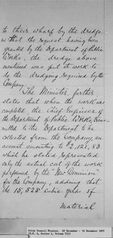 to their wharf by the dredge,
that the request having been
granted by the Department of Public
Works, the dredge above
mentioned was put to work to
do the dredging required by the
Company.
The Minister further
states that when the work was
completed the Chief Engineer of
the Department of Public Works, submitted
to the Department to be
collected from the Company, an
account amounting to $2,121.53
which he stated represented
the actual cost of the work
performed by the "New Dominion"
for the Company, adding that
the 15,525 cubic yards of
material